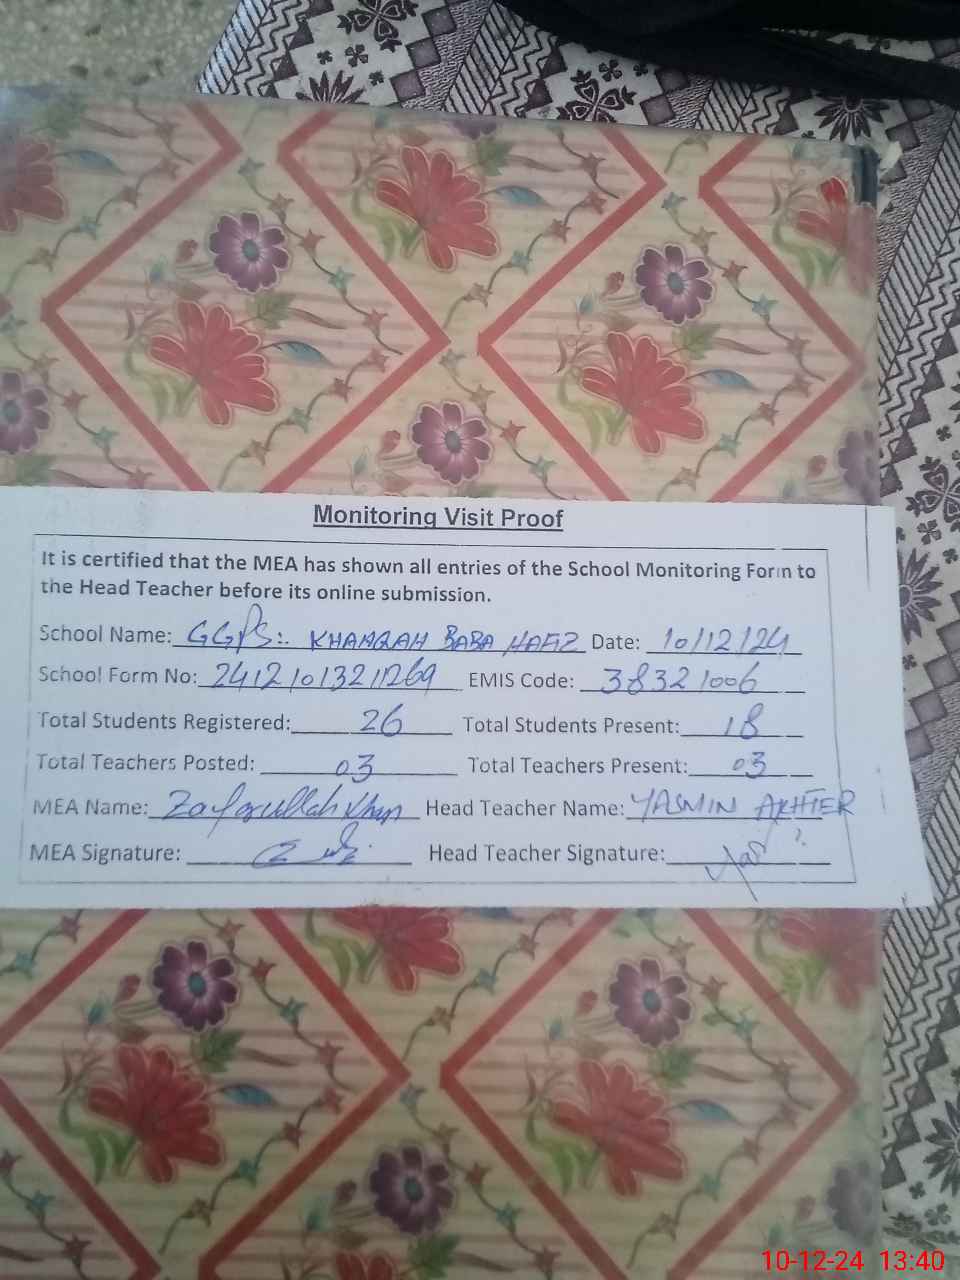 Monitoring Visit Proof
It is certified that the MEA has shown all entries of the School Monitoring Form to
the Head Teacher before its online submission.
School Name: GGPS:. KHANQAH BABA HAFIZ Date: 10/12/24
School Form No: EMIS Code: 38321006
Total Students Registered: 26 Total Students Present: 18
Total Teachers Posted: 03 Total Teachers Present: 03
MEA Name: Zafarullah Khan Head Teacher Name: YASMIN AKHTER
MEA Signature: Head Teacher Signature:
10-12-24 13:40